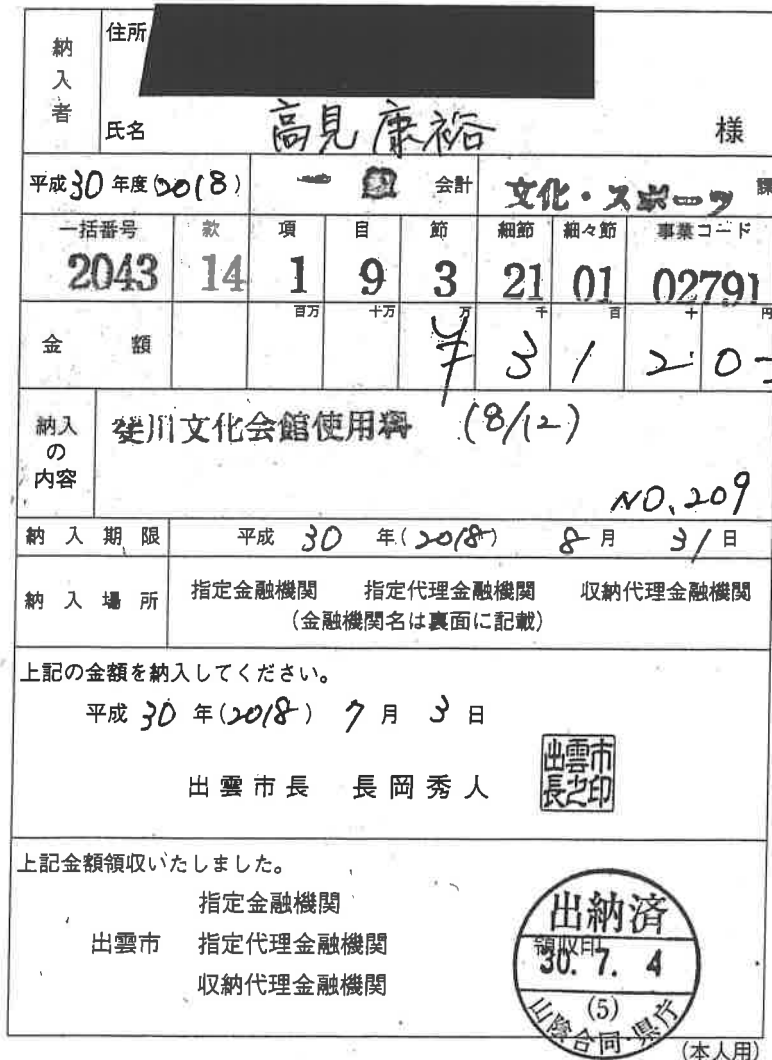 納入者
住所
氏名 高見康裕 様
平成30年度(2018) 一般 会計 文化・スポーツ 課
一括番号 款 項 目 節 細節 細々節 事業コード
2043 14 1 9 3 21 01 02791
百万 十万 万 千 百 十 円
金額 ¥31200-
納入の内容
斐川文化会館使用料 (8/12)
NO.209
納入期限 平成 30 年(2018) 8月 31日
納入場所 指定金融機関 指定代理金融機関 収納代理金融機関
(金融機関名は裏面に記載)
上記の金額を納入してください。
平成 30 年(2018) 7月 3日
出雲市長 長岡秀人
出雲市長之印
上記金額領収いたしました。
指定金融機関
出雲市 指定代理金融機関
収納代理金融機関
出納済
領収印
30. 7. 4
(5)
山陰合同・県庁
(本人用)